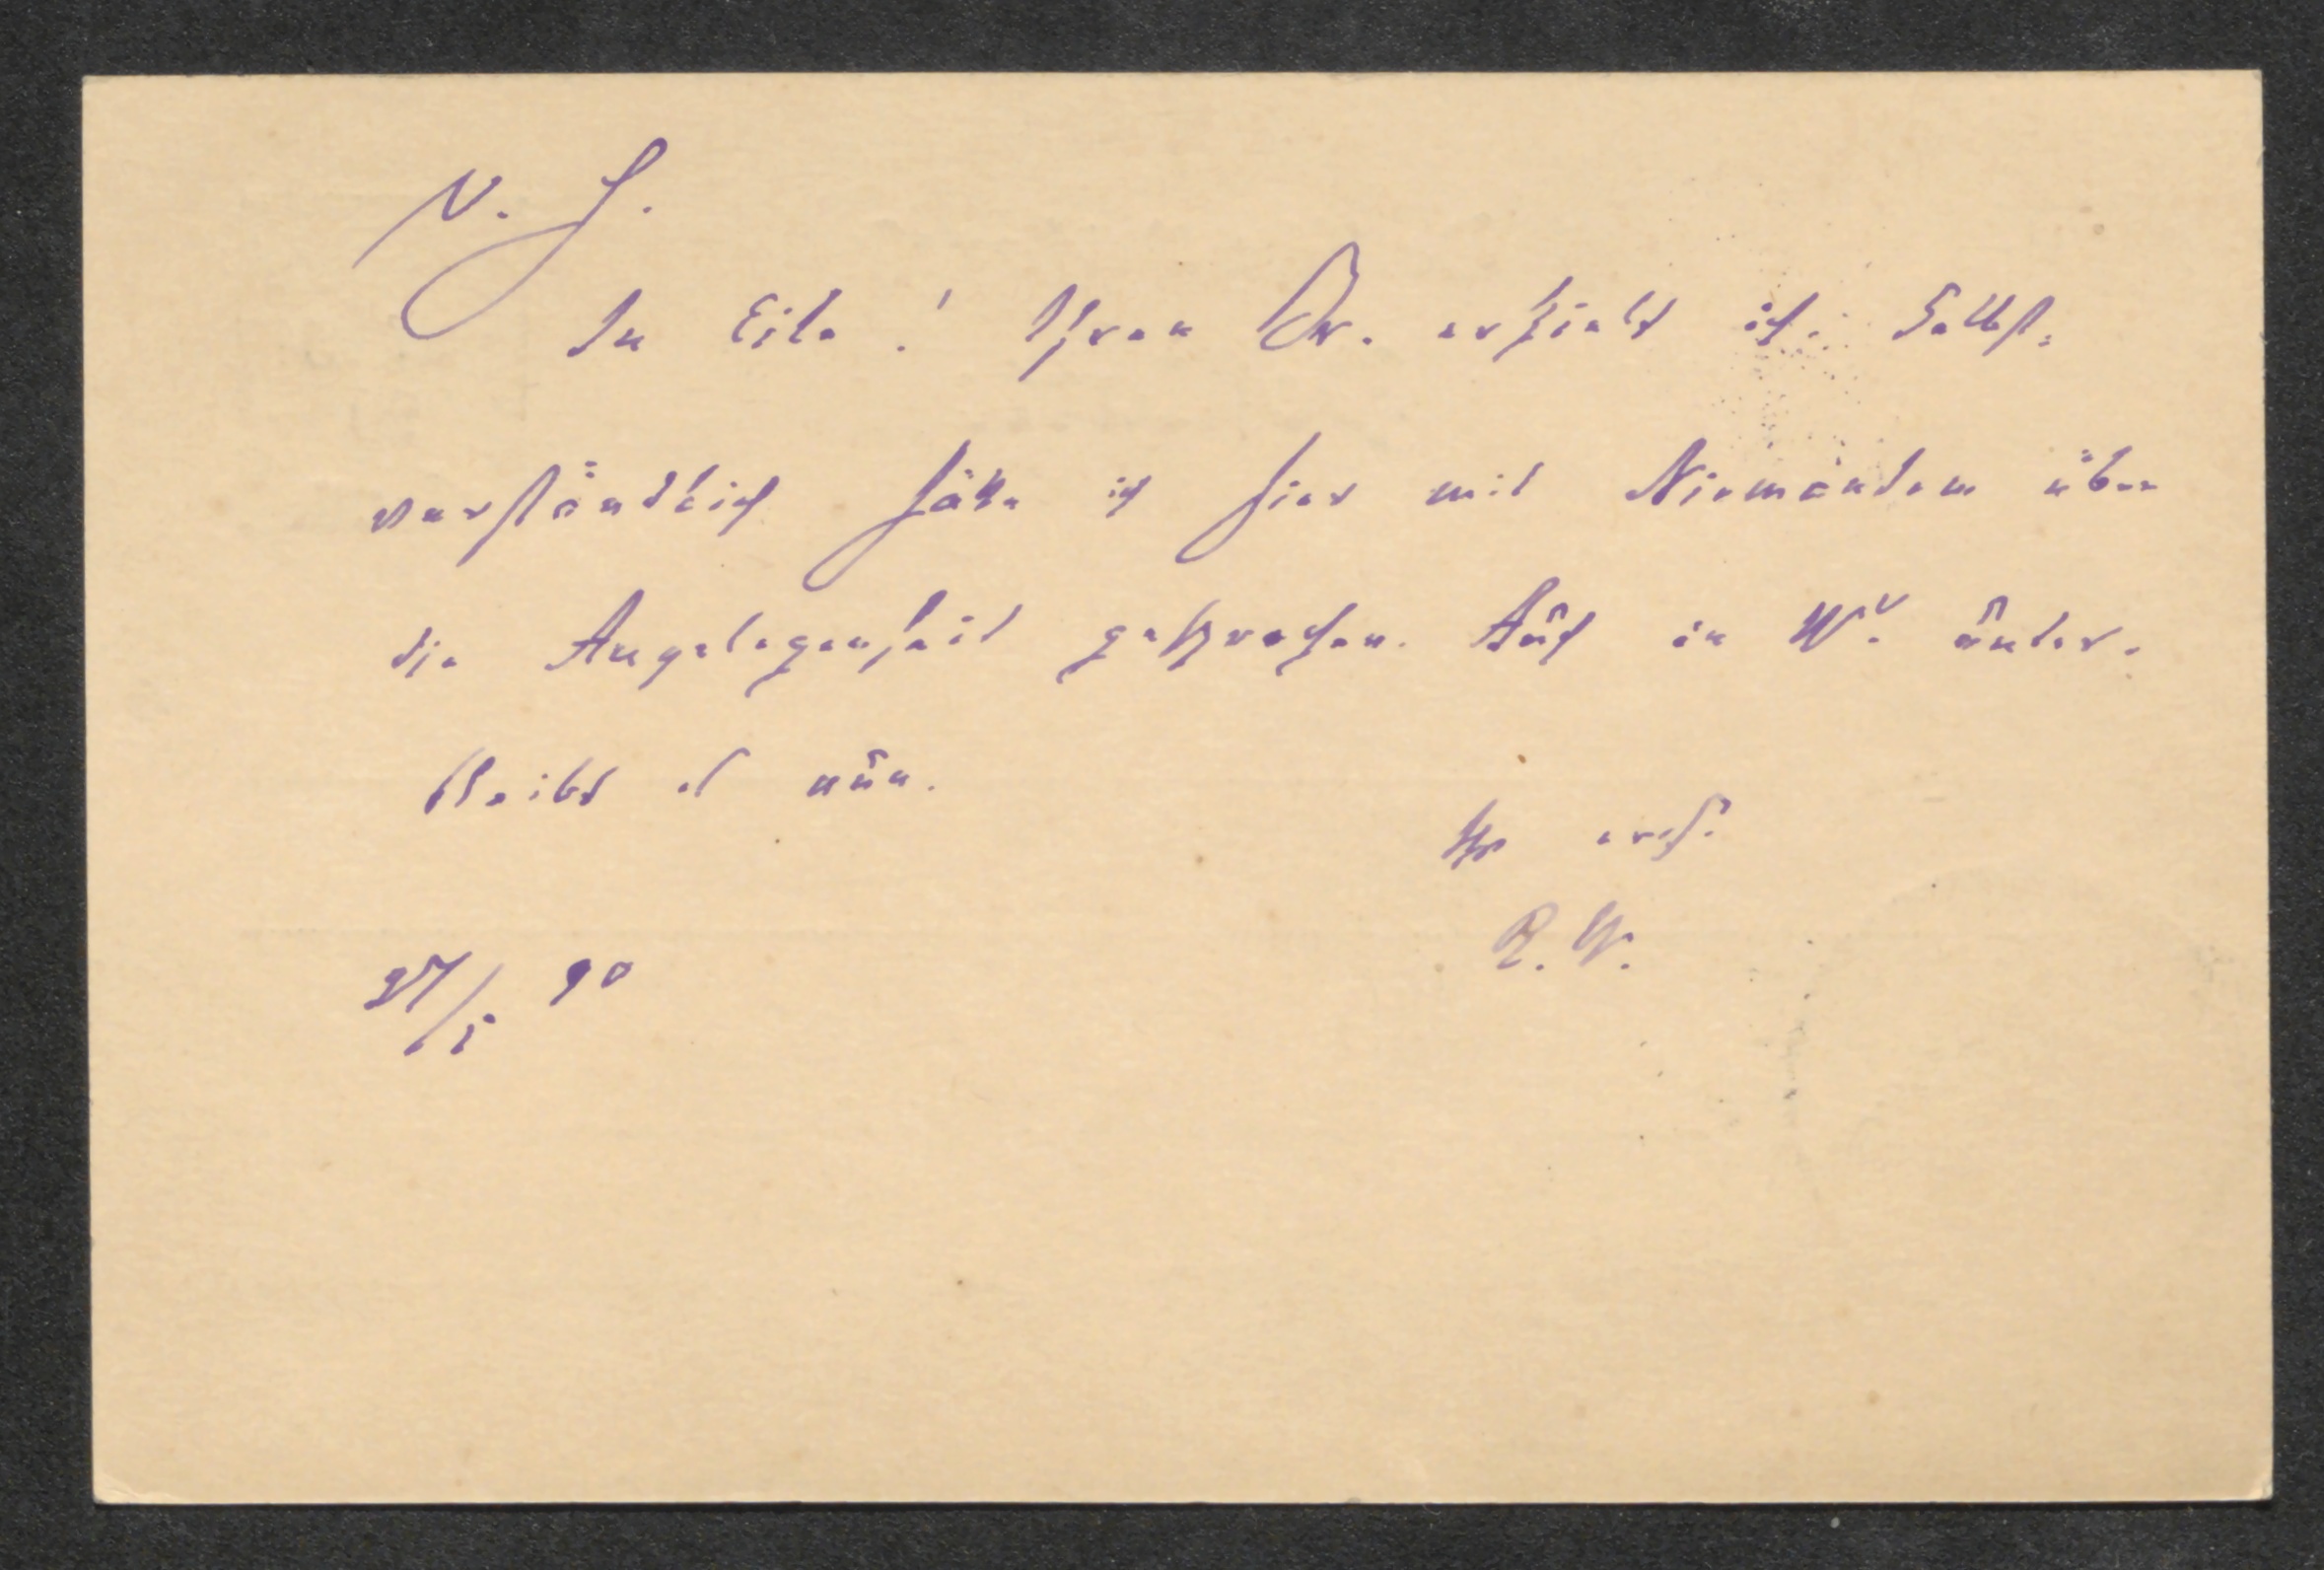 V. H.
In Eile! Ihren Br. erhielt ich. Selbst-
verständlich hätte ich hier mit Niemandem über
die Angelegenheit gesprochen. Auch in Wr. unter-
bleibt es nun.
Ihr ergb.
R. W.
27/5 90